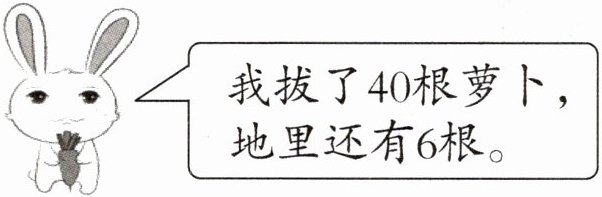 我拔了40根萝卜，
地里还有6根。